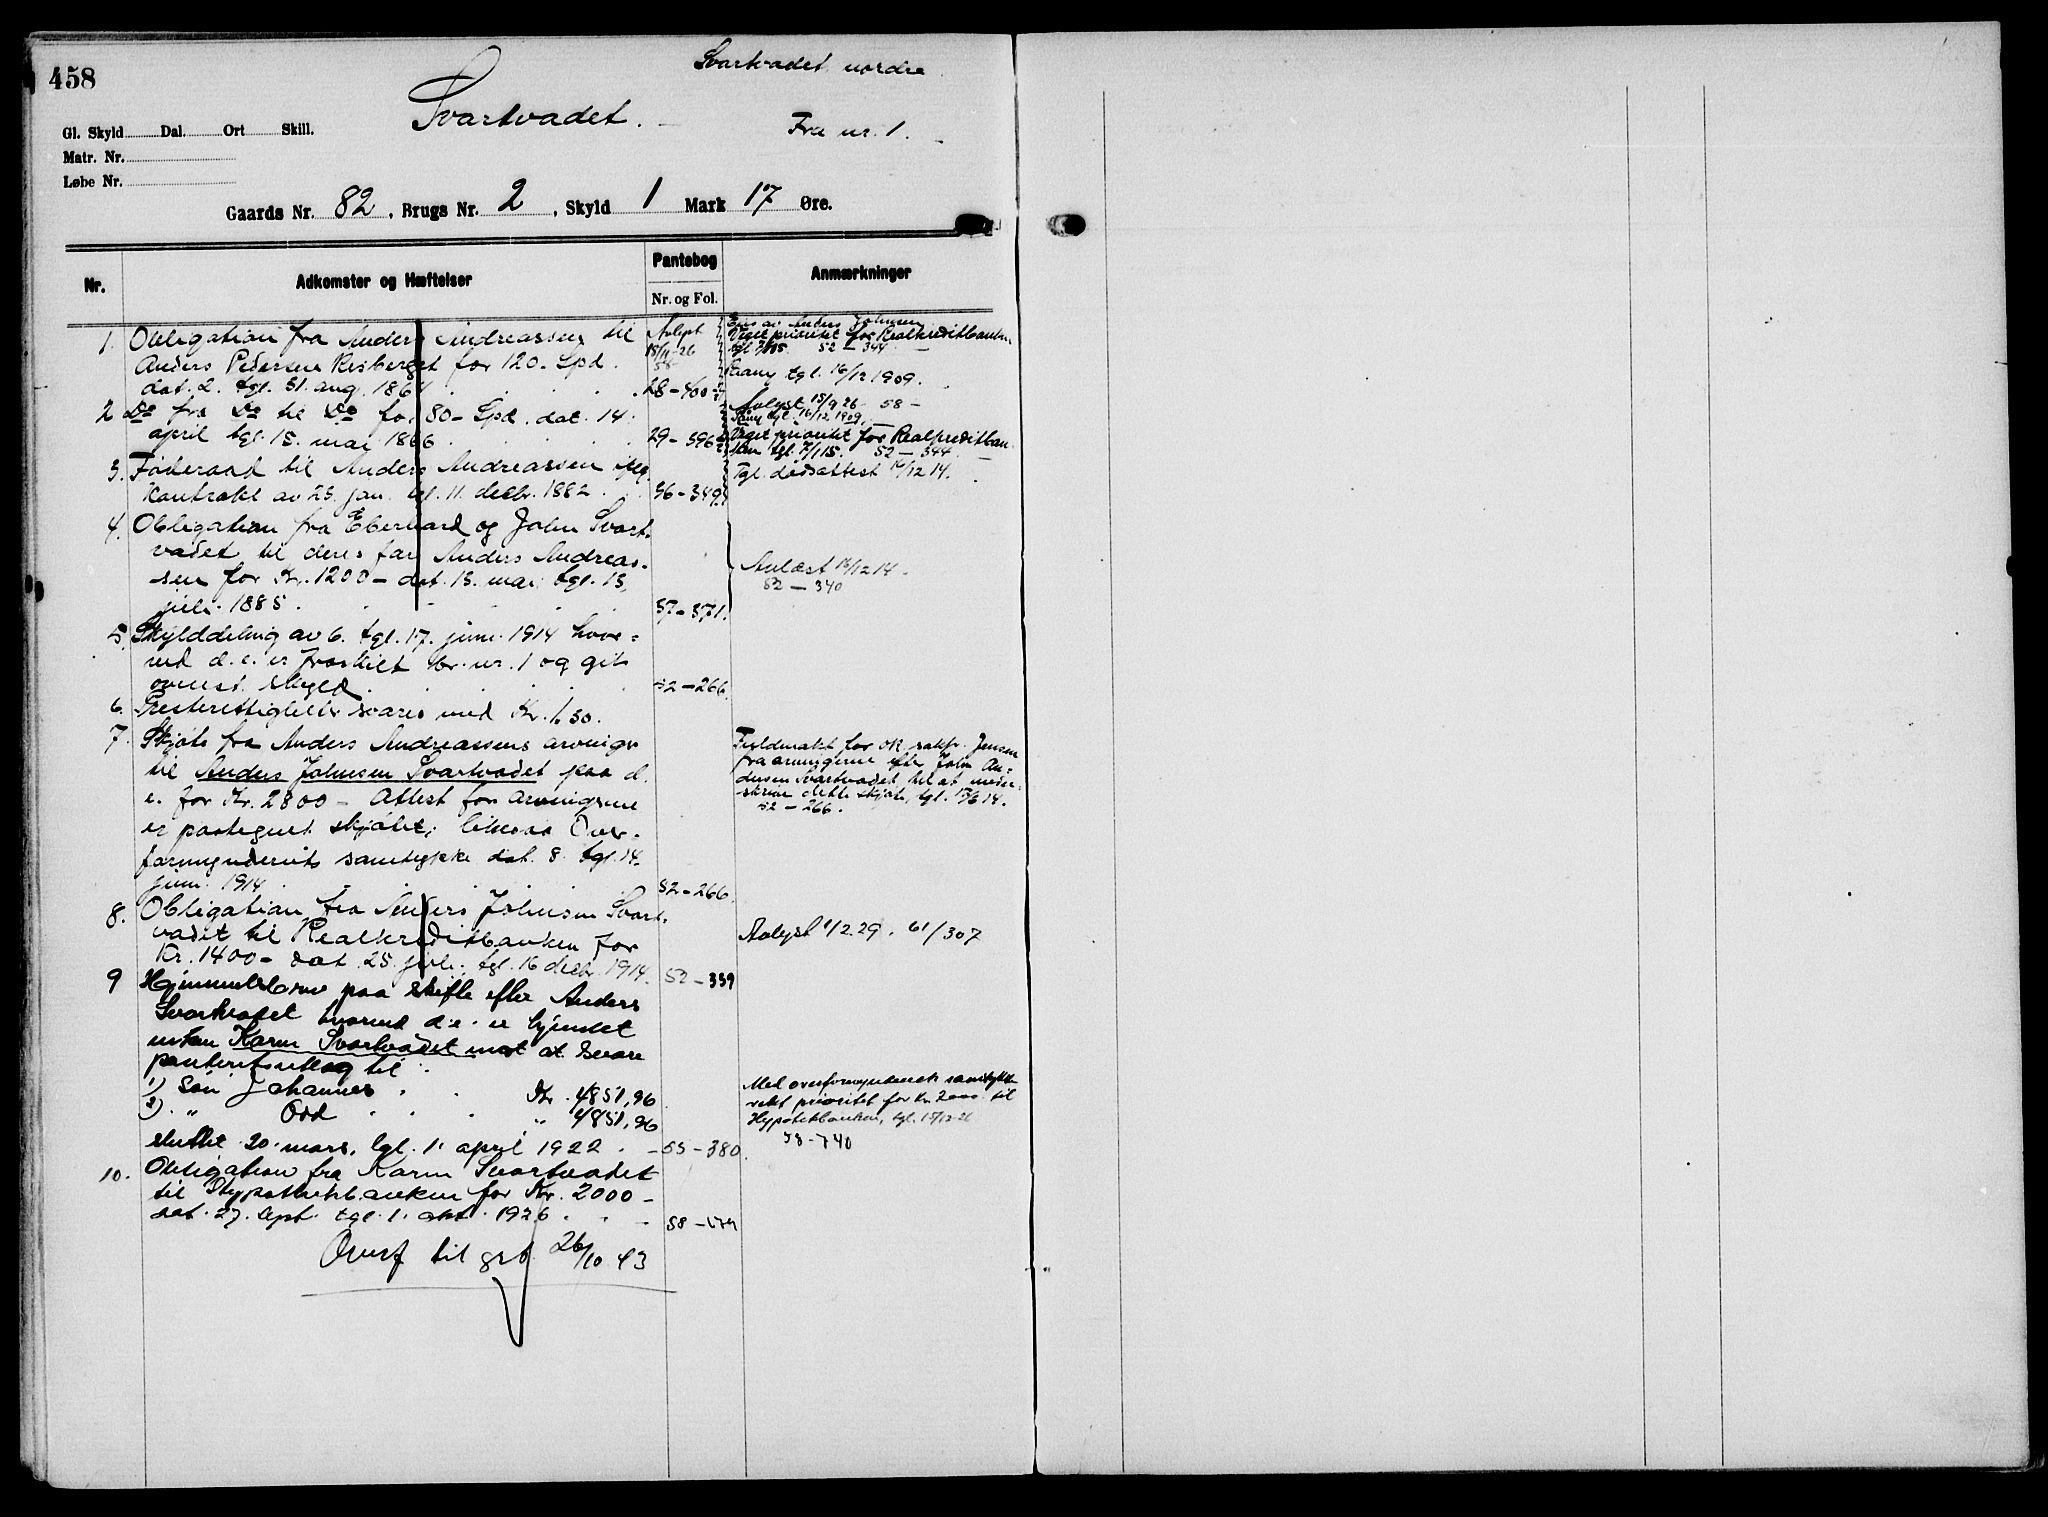 458
Svartvadet nordre
Svartvadet.
Fra nr. 1.
Gl. Skyld Dal. Ort Skill.
Matr. Nr.
Løbe Nr.
Gaards Nr. 82, Brugs Nr. 2, Skyld 1 Mark 17 Øre.
Nr. Adkomster og Hæftelser Pantebog Anmærkninger
Nr. og Fol.
1. Obligation fra Anders Andreassen til
Anders Pedersen Risberget for 120 Spd.
dat. 2. tgl. 31. aug. 1864 28-400
Avlyst
15/9-26
58-
Eies av Anders Johnsen
Veget prioritet for Realkreditbanken
tgl. 7/1 15. 52-344
Transp. tgl. 16/12 1909.
2 Do fra Do til Do for 80 Spd. dat. 14.
april tgl. 15. mai 1866 29-396
Avlyst 15/9 26 58-
Transp. tgl. 16/12 1909.
Veget prioritet for Realkreditban-
ken tgl. 7/1 15. 52-344
3. Føderaad til Anders Andreassen iflg.
kontrakt av 25. jan. tgl. 11. decbr. 1882. 36-349
Tgl. dødsattest 16/12 14.
4. Obligation fra Eberhard og John Svart-
vadet til deres far Anders Andreas-
sen for Kr. 1200- dat. 13. mai tgl. 13.
juli 1885. 37-371.
Avlæst 16/12 14.
52-340
5. Skylddeling av 6. tgl. 17. juni 1914 hvor-
ved d. e. er fraskilt br. nr. 1 og git
ovenst. skyld. 52-266.
6. Presterettigheter svares med Kr. 1.30.
7. Skjøte fra Anders Andreassens arvinger
til Anders Johnsen Svartvadet paa d.
e. for Kr. 2800- Attest for arvingerne
er paategnet skjøtet; likesaa Over-
formynderiets samtykke dat. 8. tgl. 17.
juni 1914. 52-266.
Fuldmakt for sakf. Jensen
fra arvingerne efter John An-
dersen Svartvadet til at under-
skrive dette skjøte, tgl. 17/6 14.
52-266.
8. Obligation fra Anders Johnsen Svart-
vadet til Realkreditbanken for
Kr. 1400- dat. 25. juli, tgl. 16 decbr. 1914. 52-339
Avlyst 1/2.29. 61/307
9 Hjemmelsbrev paa skifte efter Anders
Svartvadet hvorved d. e. er hjemlet
enken Karen Svartvadet mot at svare
panteretsutlæg til
1) Søn Johannes Kr. 4851,96
2) " Odd " 4851,96
sluttet 20. mars, tgl. 1. april 1922. 55-380.
Med overformynderiets samtykke
veket prioritet for Kr. 2000 til
Hypotekbanken, tgl. 15/12-26
58-740
10. Obligation fra Karen Svartvadet
til Hypothekbanken for Kr. 2000-
dat. 27. sept. tgl. 1. okt. 1926. 58-
Overf til grb. 26/10 43